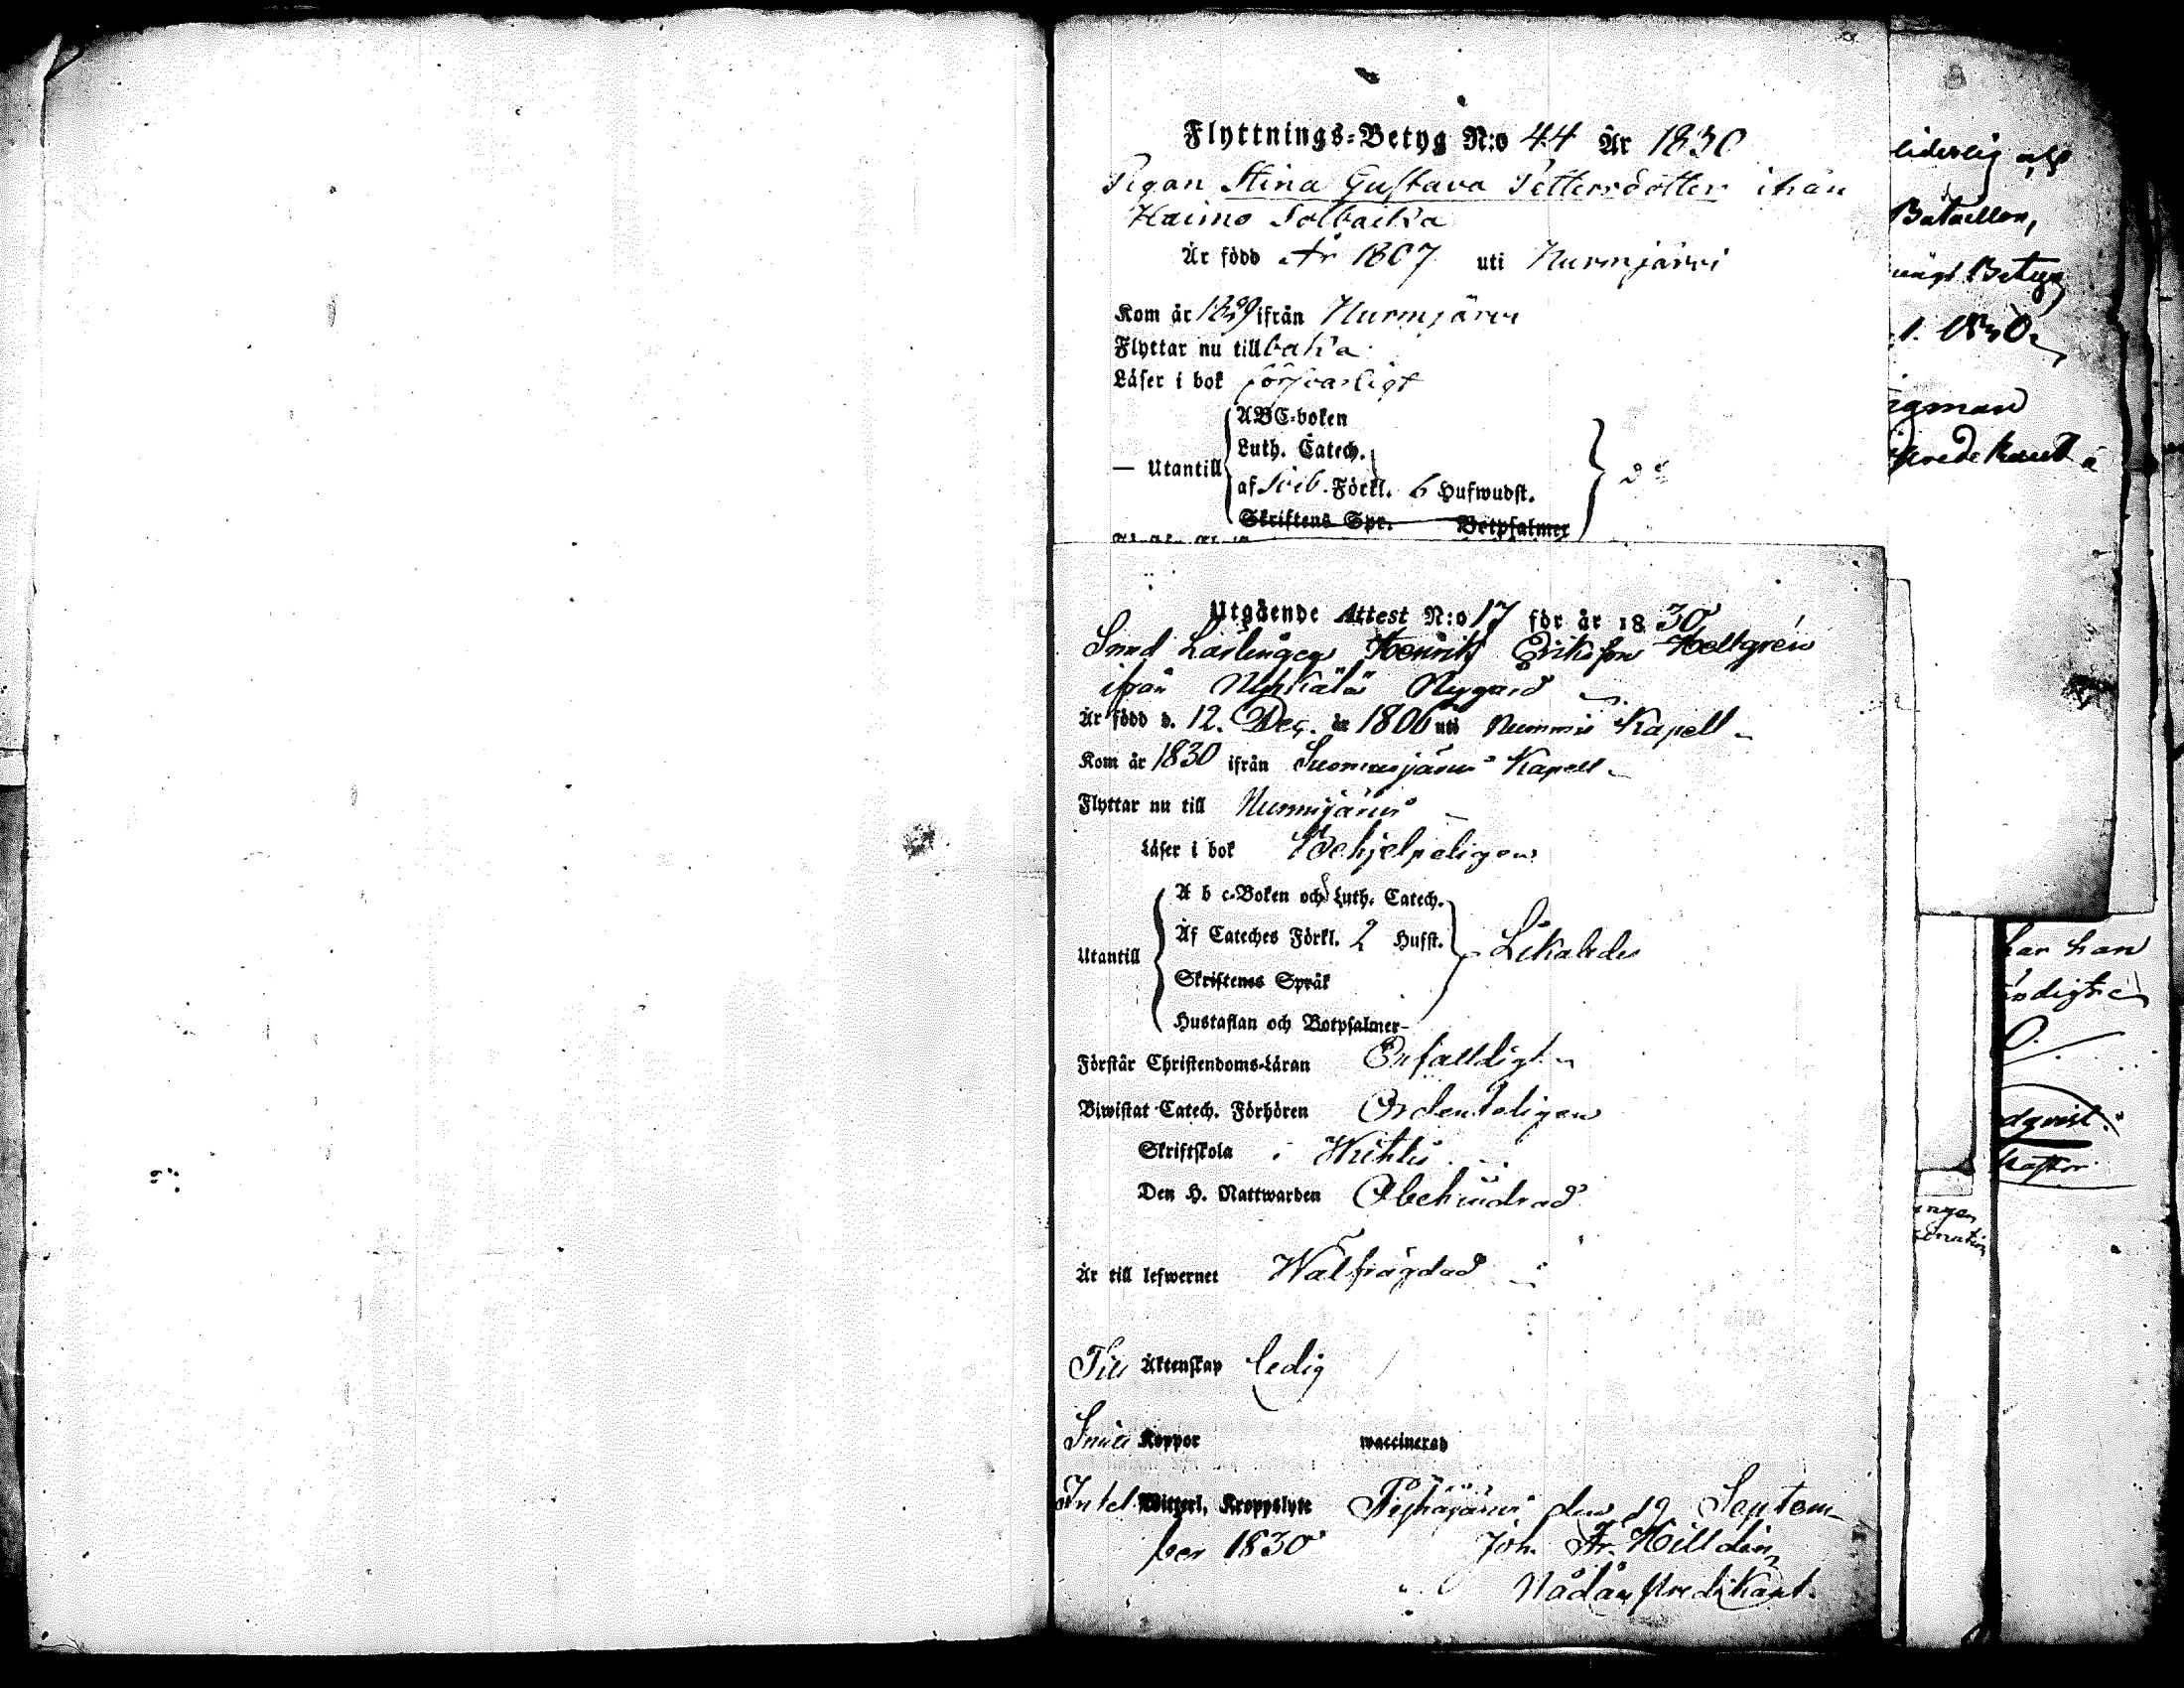 Flyttnings-Betyg N:o 44 År 1830
Pigan Stina Gustava Pettersdotter ifrån
Haimo Solbacka
Är född År 1807 uti Nurmjärvi
Kom år 1829 ifrån Nurmjärvi
Flyttar nu tillbaka
Läser i bok försvarligt
ABC-boken
Luth. Catech.
— Utantill
af Sveb. Förkl. 6 Hufwudst.
Skriftens Spr. Botpsalmer
Utgående Attest N:o 17 för år 1830
Smed Lärlingen Henrik Eriksson Hellgrén
ifrån Nygård
Är född d. 12. Dec. år 1806 uti Nummis Kapell
Kom år 1830 ifrån Suomusjärvi Kapell
Flyttar nu till Nurmijärvi
Läser i bok Behjelpeligen
A b c-Boken och Luth. Catech.
Af Cateches Förkl. 2 Hufst. Likaledes
Utantill
Skriftenes Språk
Hustaflan och Botpsalmer
Förstår Christendoms-Läran Enfalldigt
Biwistat Catech. Förhören Ordenteligen
Skriftskola i Wichtis
Den H. Nattwarden Obehindrad
Är till lefwernet Wälfrägdad
Till Äktenskap ledig
Koppor waccinerad
Witterl. Kroppslyte Pyhäjärvi den 19 Septem-
ber 1830 Joh. Fr. Hilldén
Nådårs predikant.
liderlig
Bataillon,
Betyg
predikant
har han